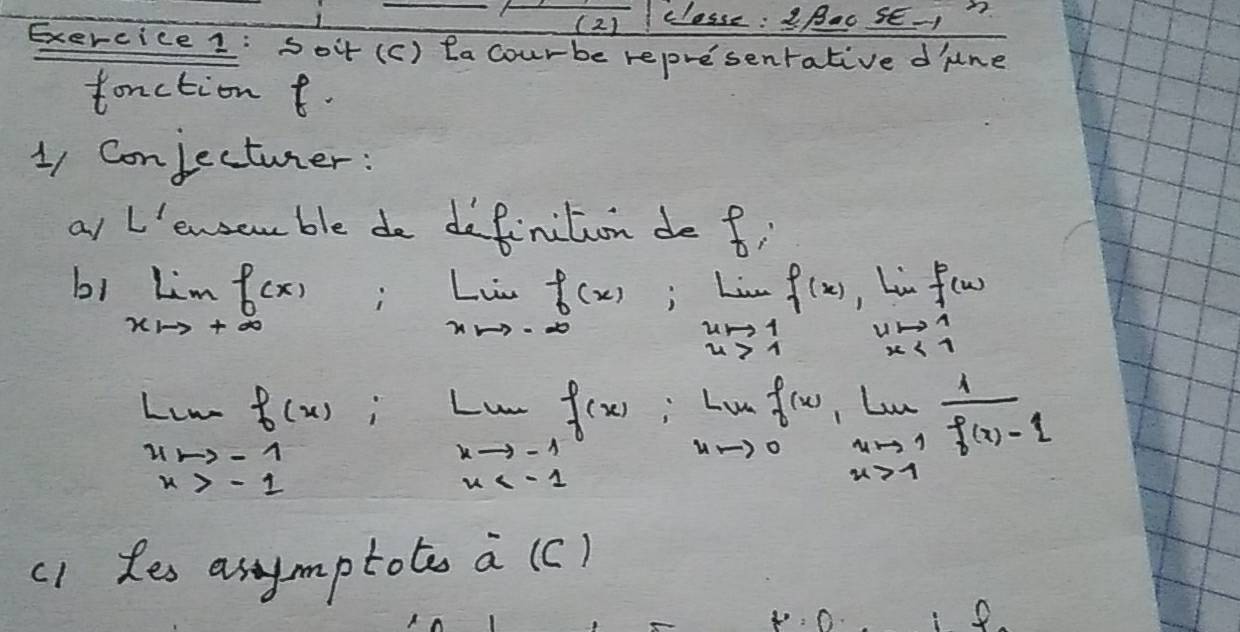 (2) classe : 2 Bac SE-1
Exercice 1 : Soit (C) la courbe représentative d'une
fonction f.
1/ Conjecturer :
a/ L'ensemble de définition de f ;
b/ lim f(x) ; Lim f(x) ; Lim f(x), Lim f(x)
x ↦ +∞ x ↦ -∞ x ↦ 1 x ↦ 1
x > 1 x < 1
Lim f(x) ; Lim f(x) ; Lim f(x), Lim 1/(f(x) - 1)
x ↦ -1 x → -1 x ↦ 0 x ↦ 1
x > -1 x < -1 x > 1
c/ Les assymptotes à (C)